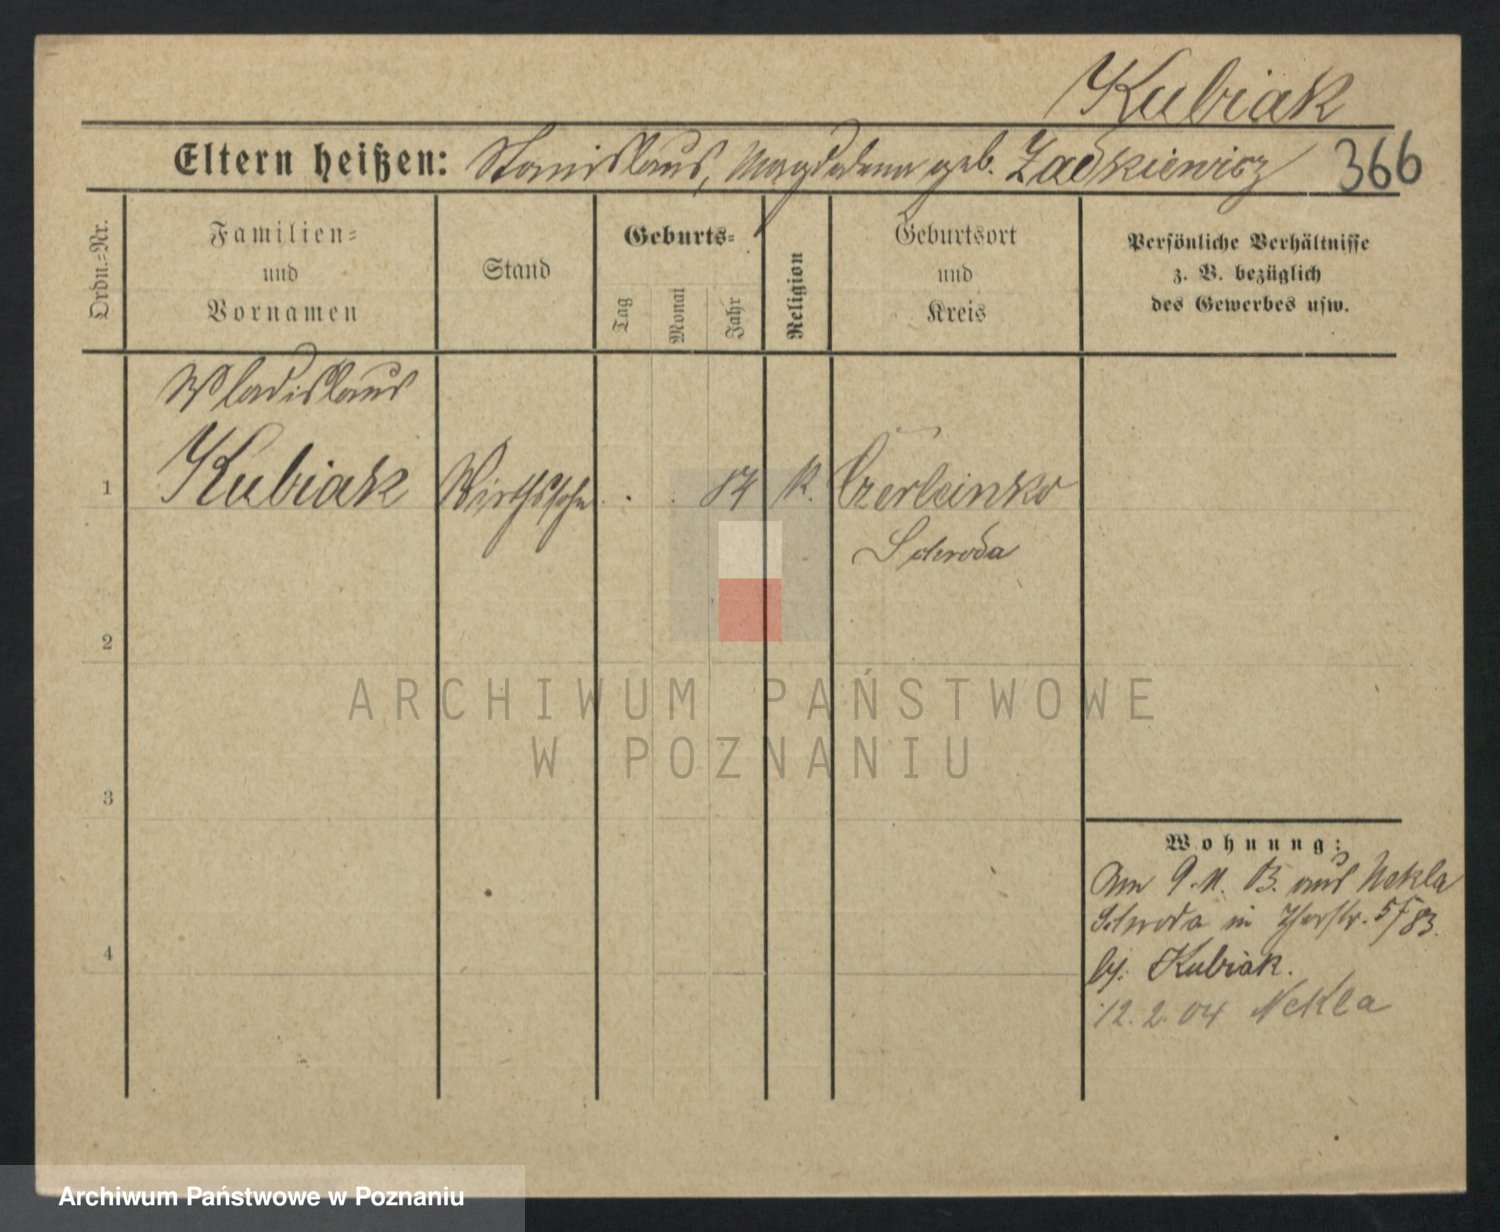 Kubiak
Eltern heißen: Stanislaus, Magdalena geb. Zadkiewicz 366
Ordn.-Nr.
Familien-
und
Vornamen
Stand
Geburts-
Tag
Monat
Jahr
Religion
Geburtsort
und
Kreis
Persönliche Verhältnisse
z. B. bezüglich
des Gewerbes usw.
Wladislaus
1 Kubiak Wirthssohn . . 87 K. Czerleinko
Schroda
2
3
4
ARCHIWUM PAŃSTWOWE
W POZNANIU
Wohnung:
Am 9. 11. aus Nekla
Schroda in 5/83.
b/. Kubiak.
12. 2. 04 Nekla
Archiwum Państwowe w Poznaniu